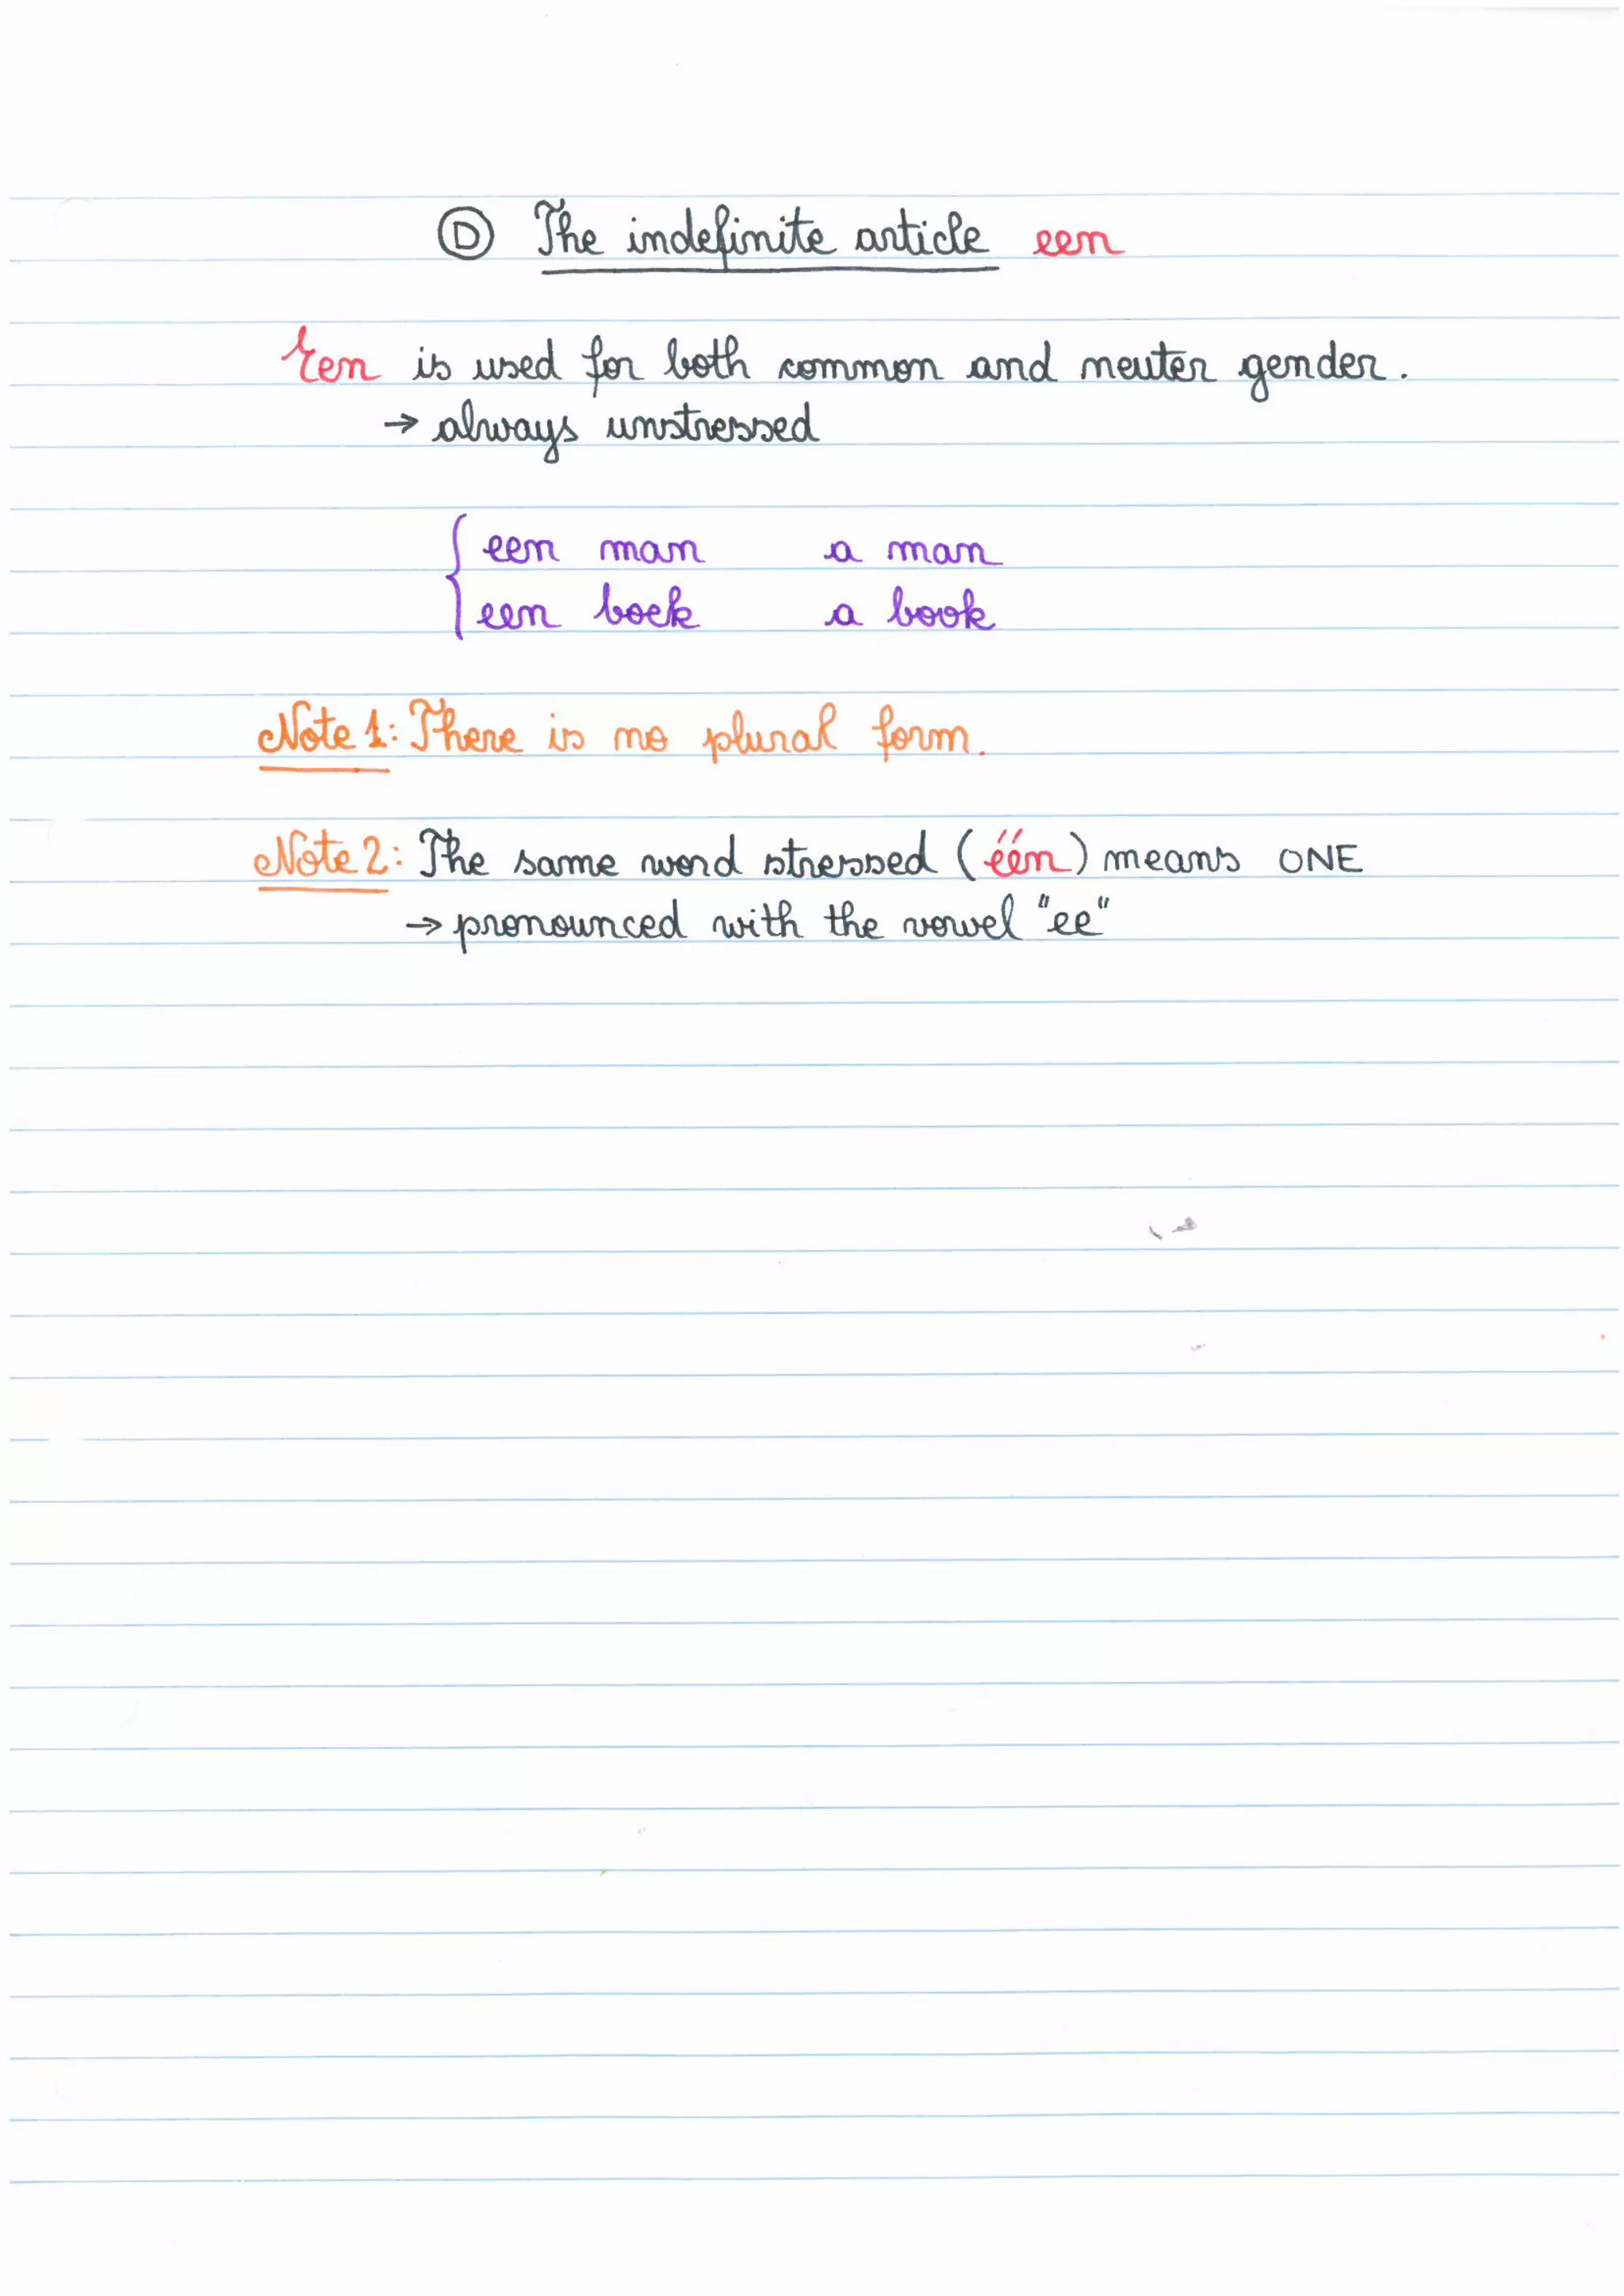 Ⓓ The indefinite article een
Een is used for both common and neuter gender.
→ always unstressed
een man a man
een boek a book
Note 1: There is no plural form.
Note 2: The same word stressed (één) means ONE
→ pronounced with the vowel "ee"